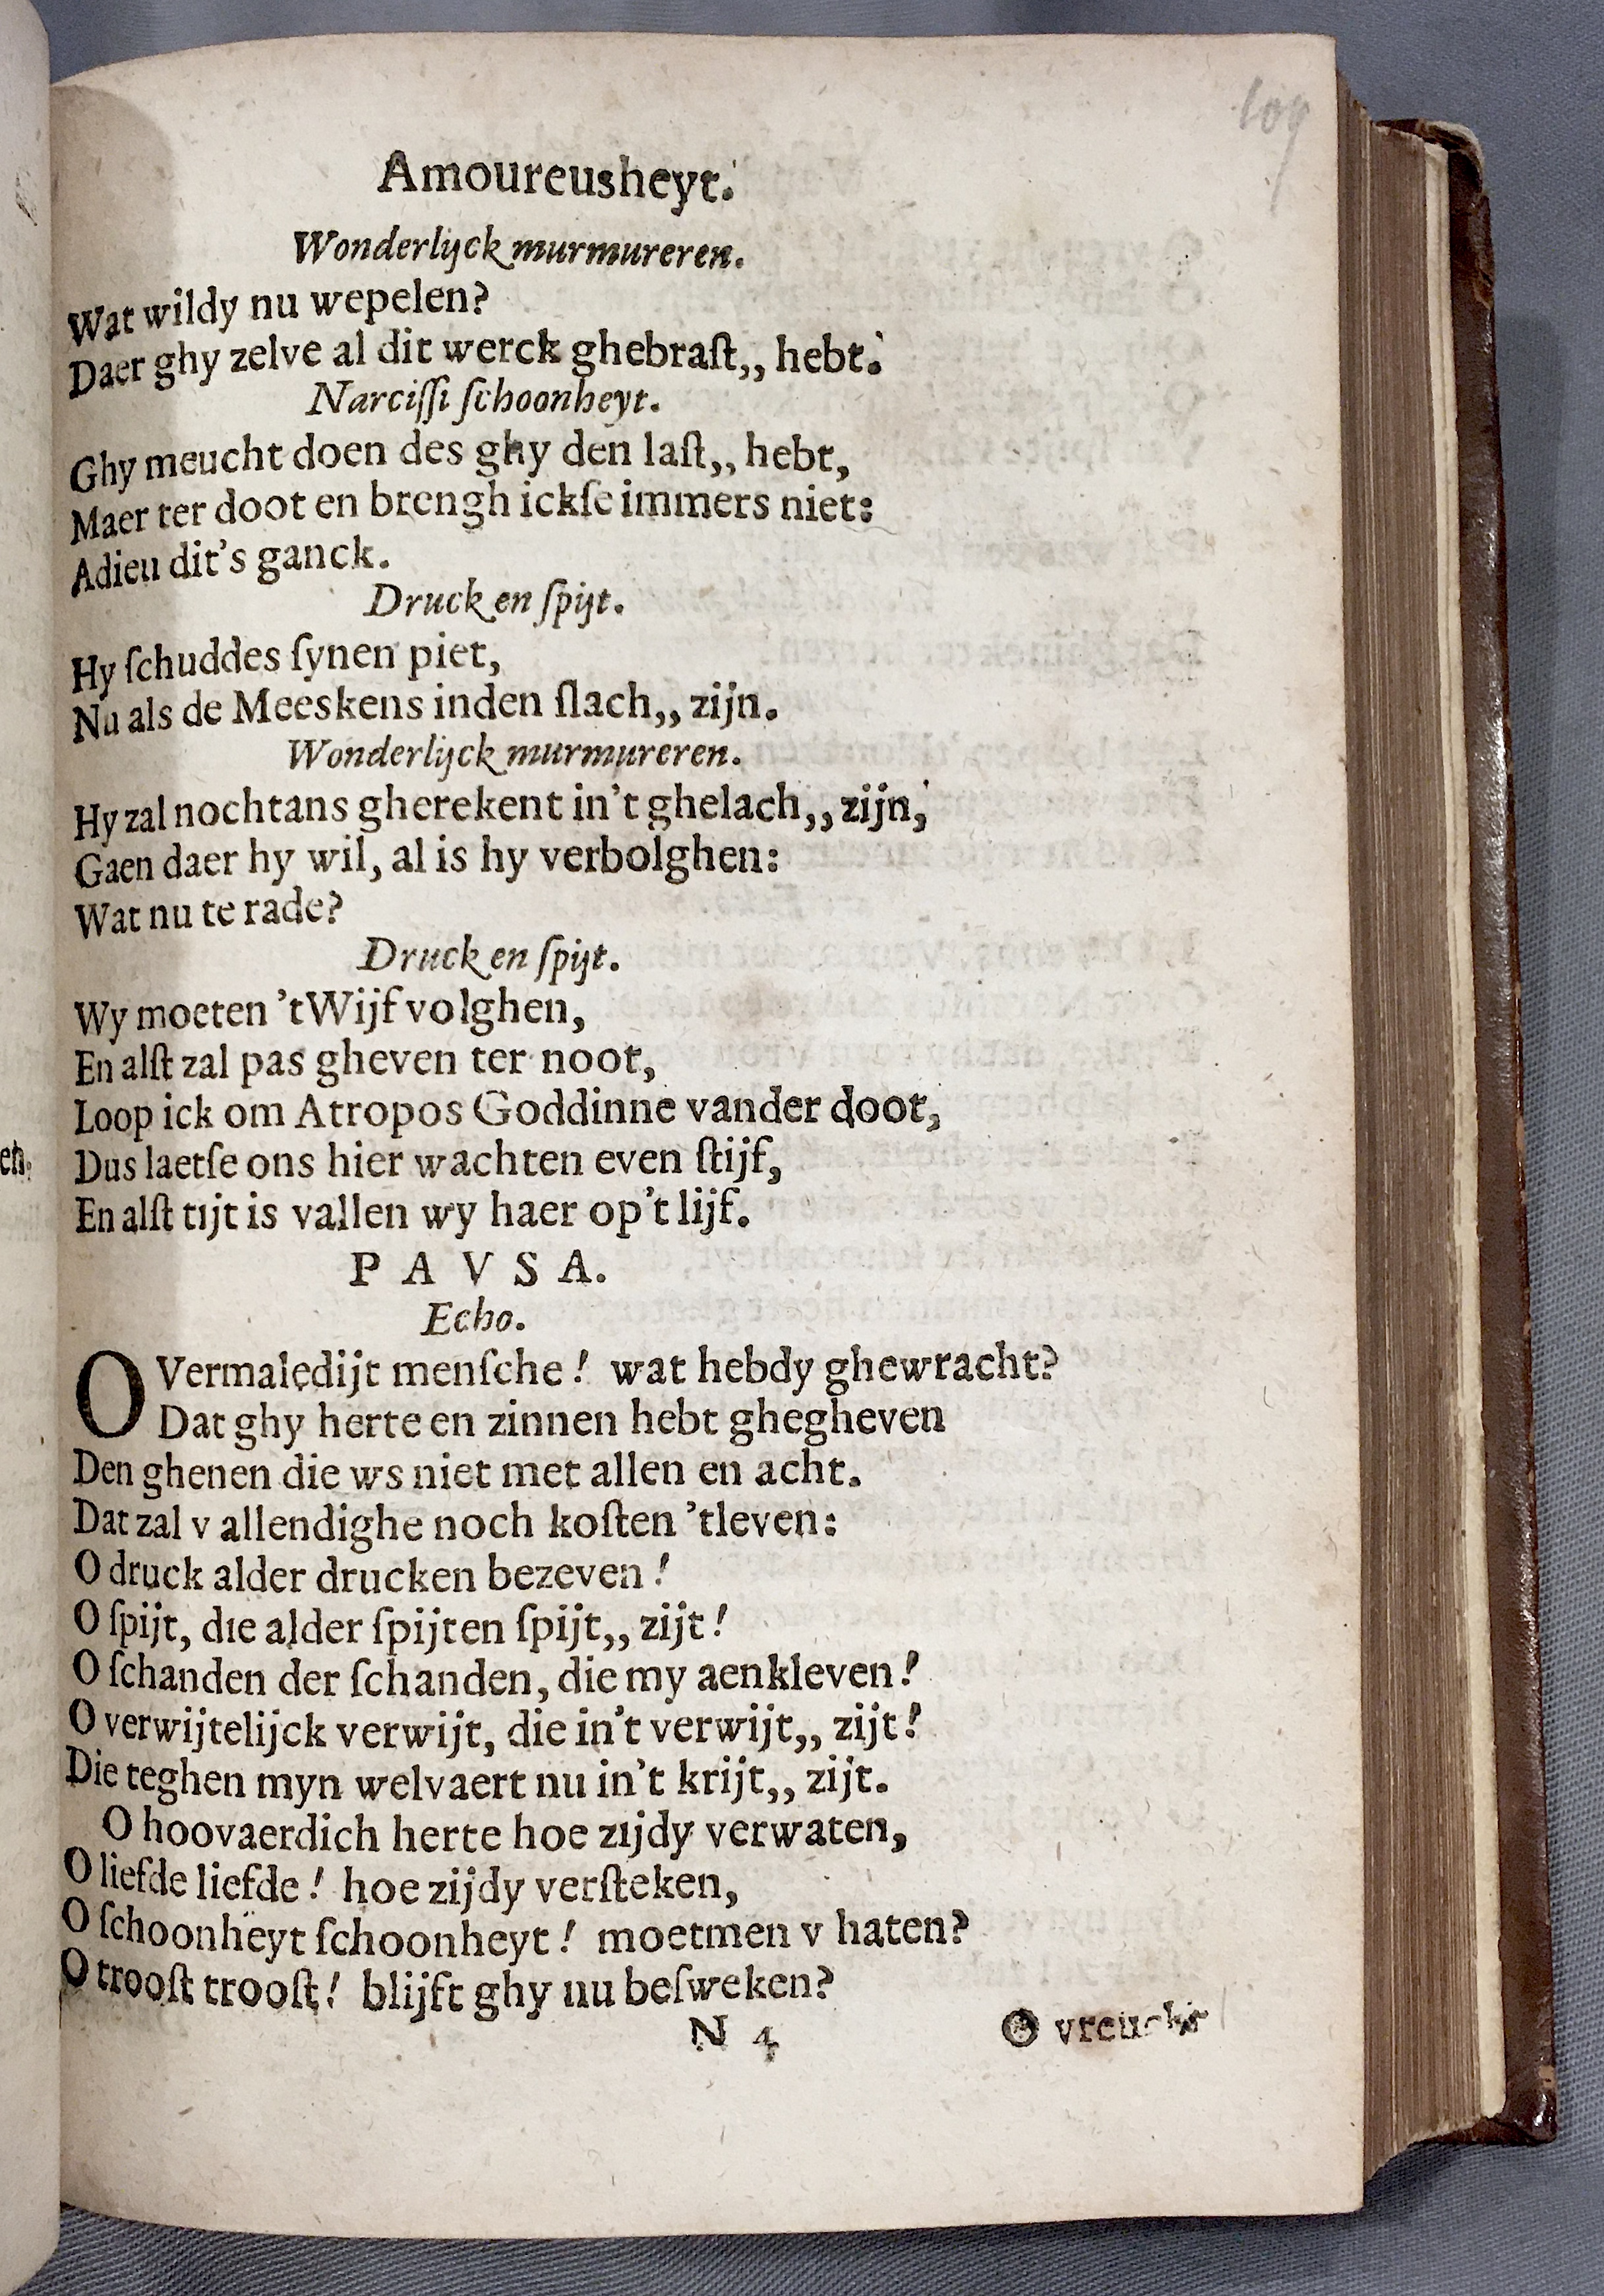 109
Amoureusheyt.
Wonderlijck murmureren.
Wat wildy nu wepelen?
Daer ghy zelve al dit werck ghebraſt,, hebt.
Narciſſi ſchoonheyt.
Ghy meucht doen des ghy den laſt,, hebt,
Maer ter doot en brengh ickſe immers niet:
Adieu dit's ganck.
Druck en ſpijt.
Hy ſchuddes ſynen piet,
Nu als de Meeskens inden ſlach,, zijn.
Wonderlijck murmureren.
Hy zal nochtans gherekent in't ghelach,, zijn,
Gaen daer hy wil, al is hy verbolghen:
Wat nu te rade?
Druck en ſpijt.
Wy moeten 'tWijf volghen,
En alſt zal pas gheven ter noot,
Loop ick om Atropos Goddinne vander doot,
en.
Dus laetſe ons hier wachten even ſtijf,
En alſt tijt is vallen wy haer op't lijf.
P A V S A.
Echo.
O Vermaledijt menſche! wat hebdy ghewracht?
Dat ghy herte en zinnen hebt ghegheven
Den ghenen die ws niet met allen en acht.
Dat zal v allendighe noch koſten 'tleven:
O druck alder drucken bezeven!
O ſpijt, die alder ſpijten ſpijt,, zijt!
O ſchanden der ſchanden, die my aenkleven!
O verwijtelijck verwijt, die in't verwijt,, zijt!
Die teghen myn welvaert nu in't krijt,, zijt.
O hoovaerdich herte hoe zijdy verwaten,
O liefde liefde! hoe zijdy verſteken,
O ſchoonheyt ſchoonheyt! moetmen v haten?
O trooſt trooſt! blijft ghy nu beſweken?
N 4
O vreucht